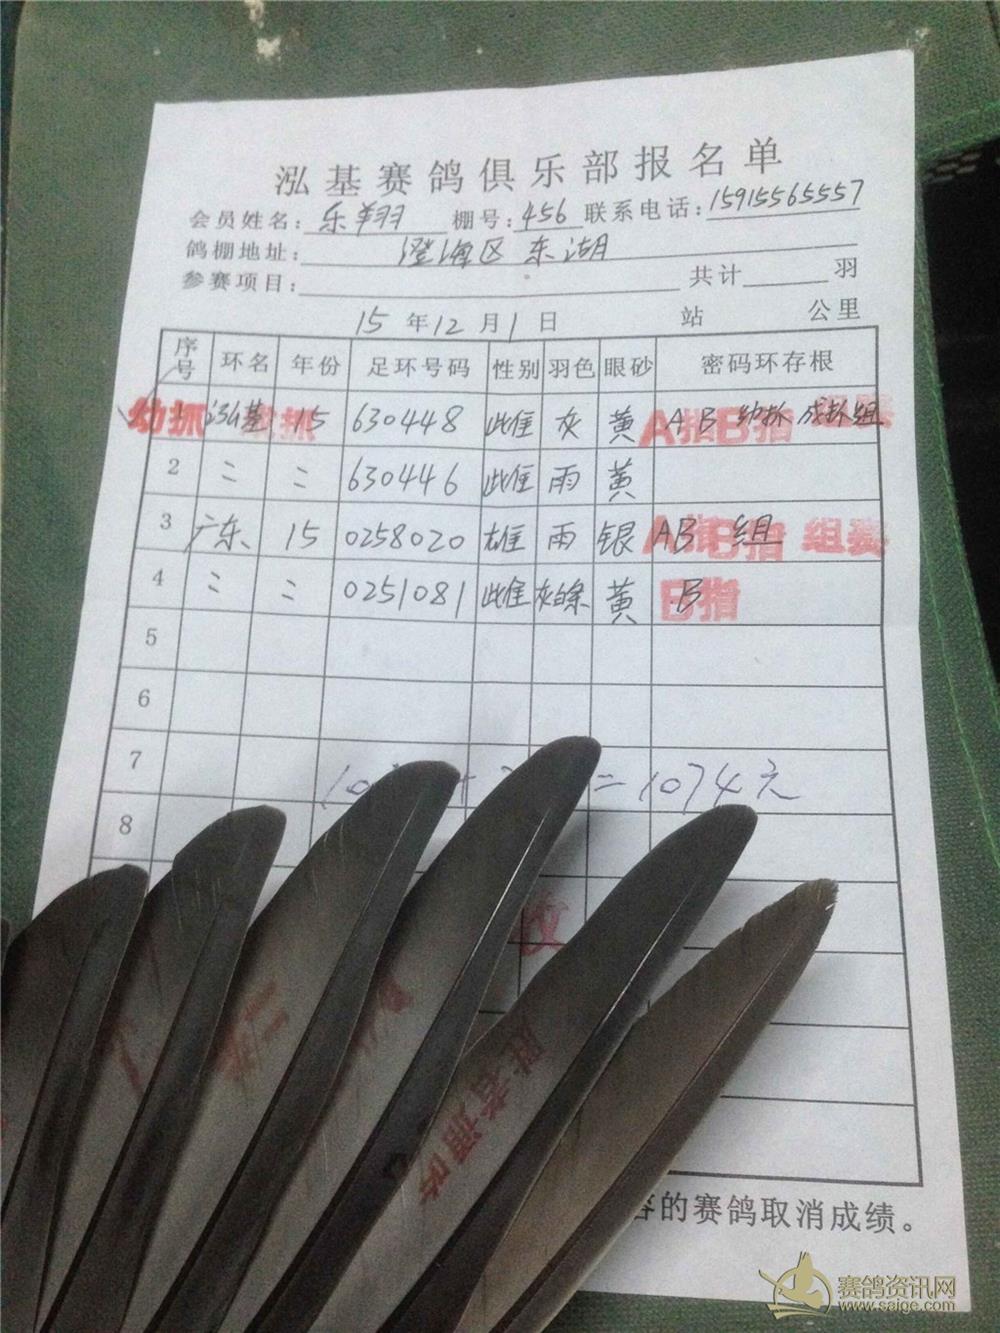 泓基赛鸽俱乐部报名单
会员姓名: 乐翔羽 棚号: 456 联系电话: 15915565557
鸽棚地址: 澄海区 东湖
参赛项目: 共计 羽
15 年 12 月 1 日 站 公里
序号 环名 年份 足环号码 性别 羽色 眼砂 密码环存根
幼抓 泓基 15 630448 雌 灰 黄 A B 幼抓 成抓 组 A指 B指
2 〃 〃 630446 雌 雨 黄
3 广东 15 0258020 雄 雨 银 AB 组 A指 B指 组赛
4 〃 〃 0251081 雌 灰白条 黄 B B指
5
6
7 = 1074元
8
的赛鸽取消成绩。
赛鸽资讯网
www.saige.com